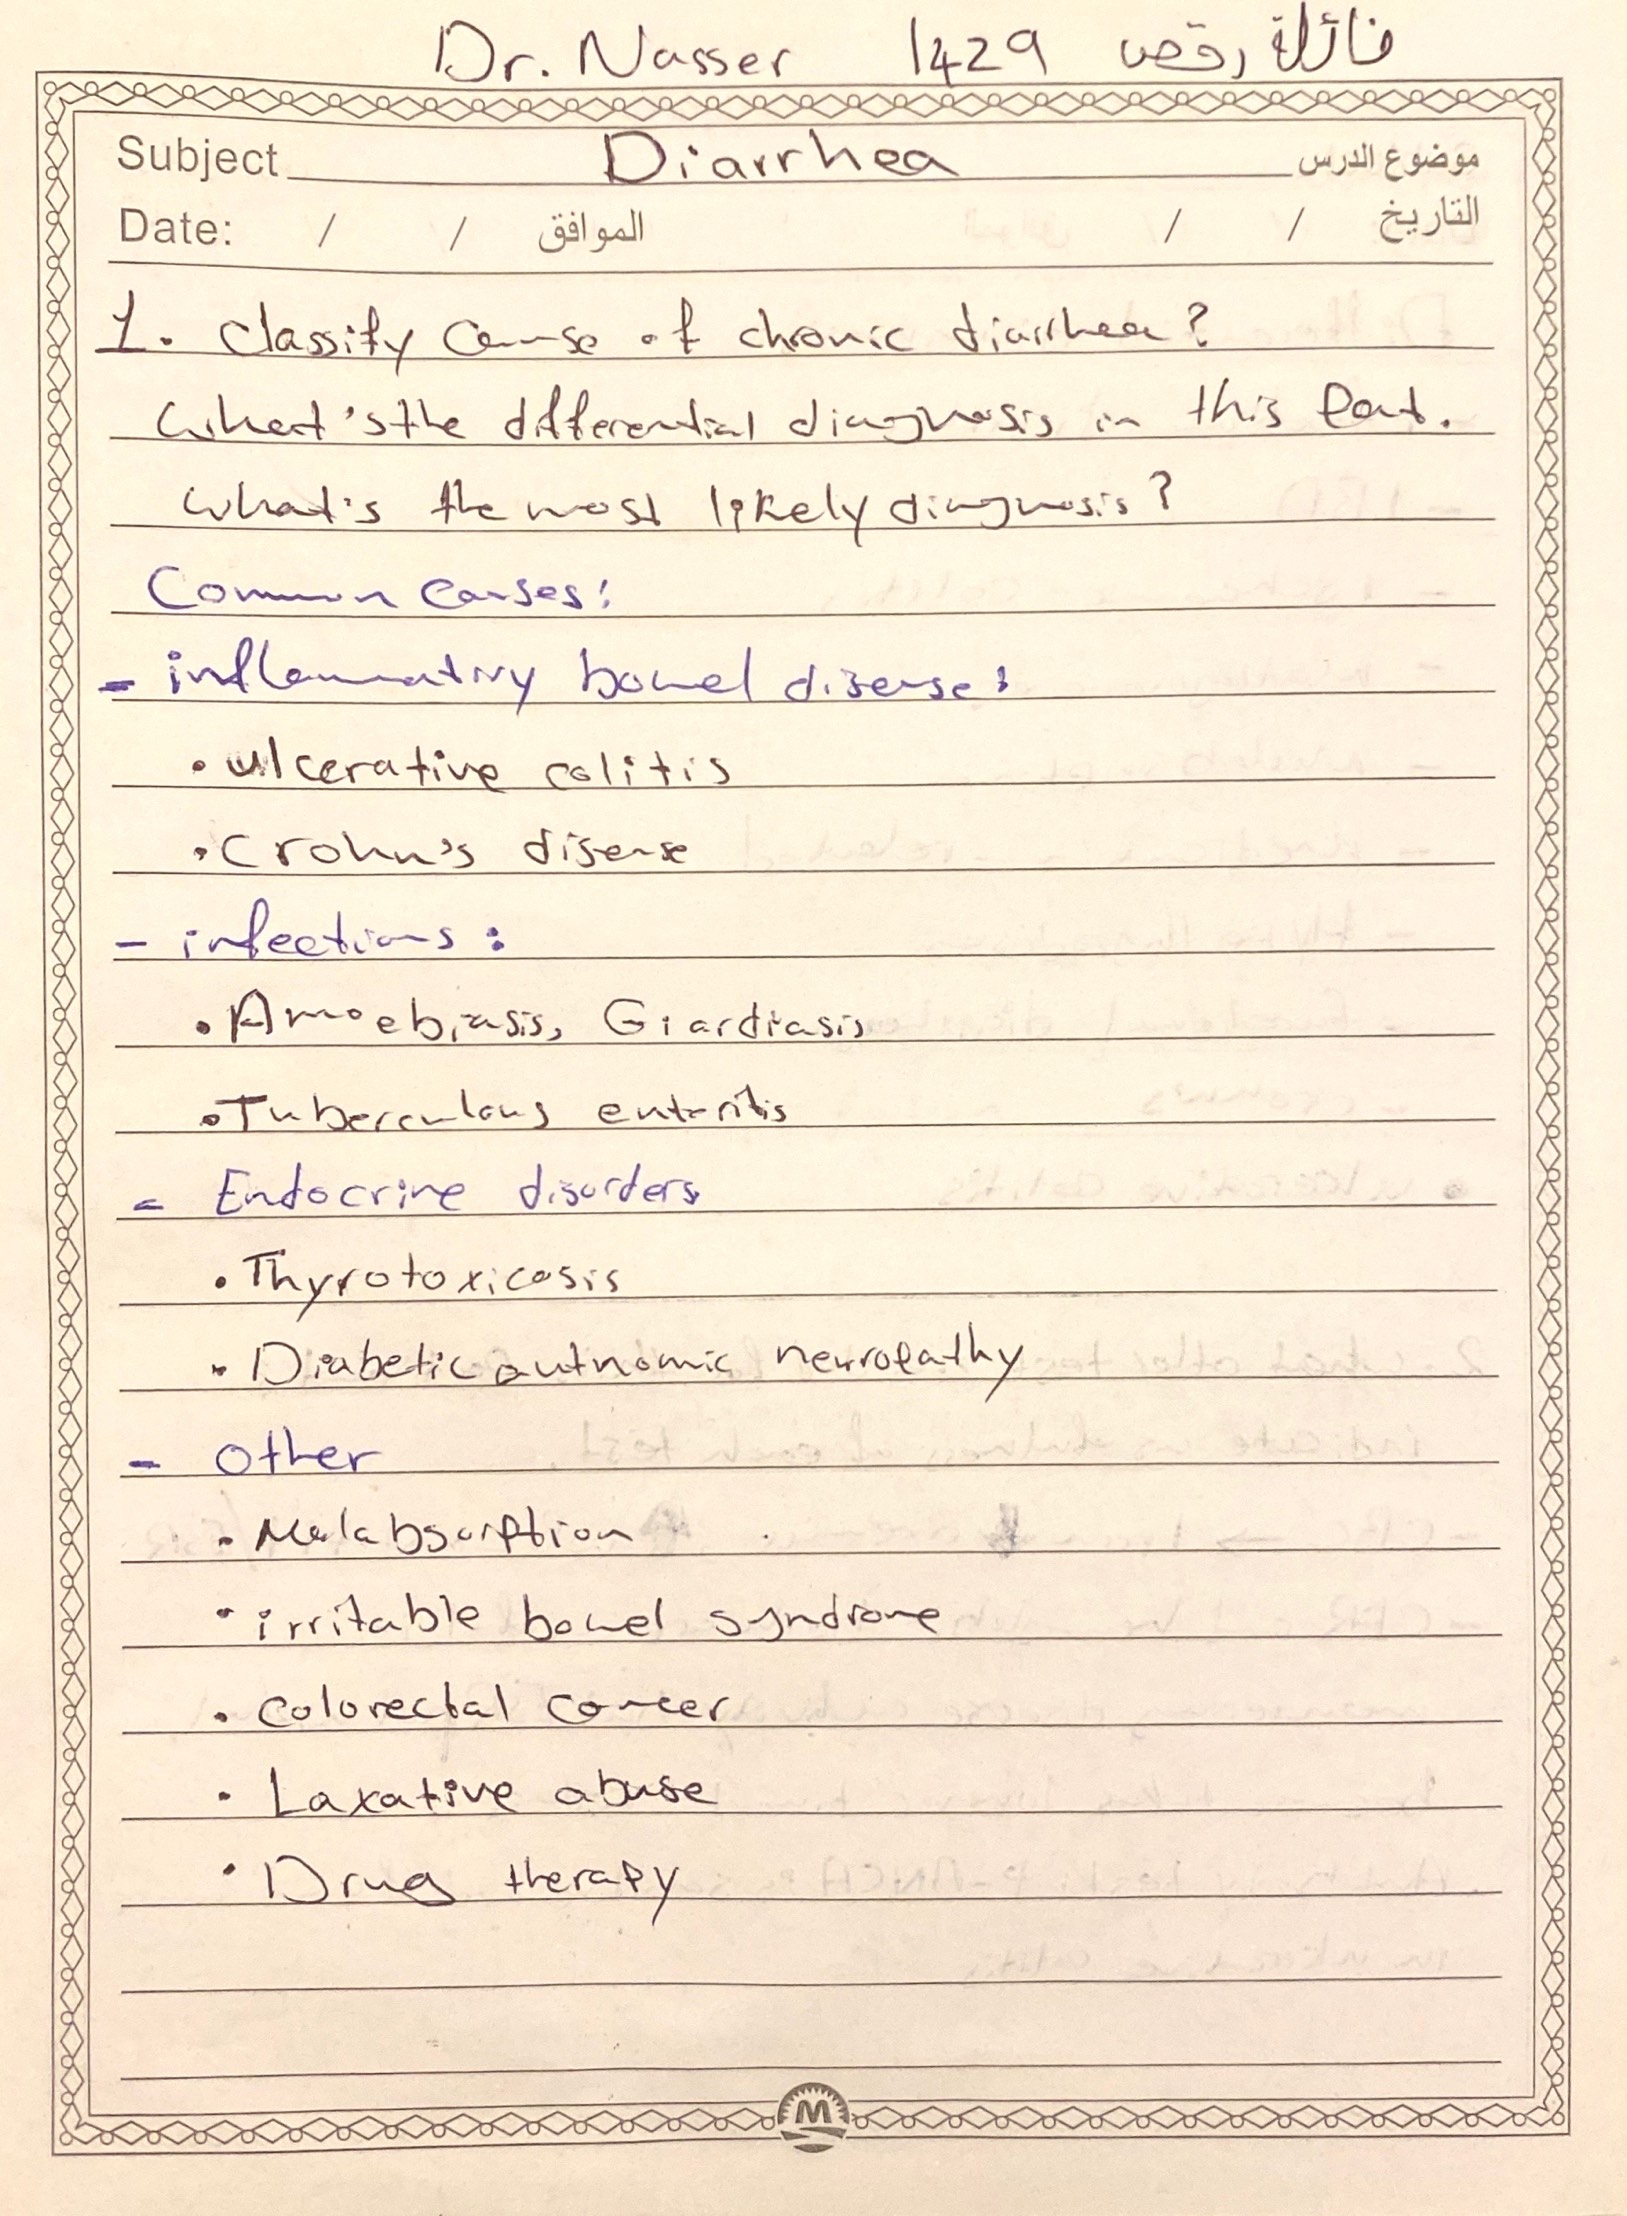 Dr. Nasser 1429 فائلة رقص
Subject Diarrhea موضوع الدرس
Date: / / الموافق / / التاريخ
1. Classify cause of chronic diarrhea?
what's the differential diagnosis in this pat.
what's the most likely diagnosis?
Common causes:
- inflammatory bowel disease:
• ulcerative colitis
• Crohn's disease
- infections:
• Amoebiasis, Giardiasis
• Tuberculous enteritis
- Endocrine disorders
• Thyrotoxicosis
• Diabetic autnomic neuropathy
- other
• Malabsorption
• irritable bowel syndrome
• colorectal cancer
• Laxative abuse
• Drug therapy
M